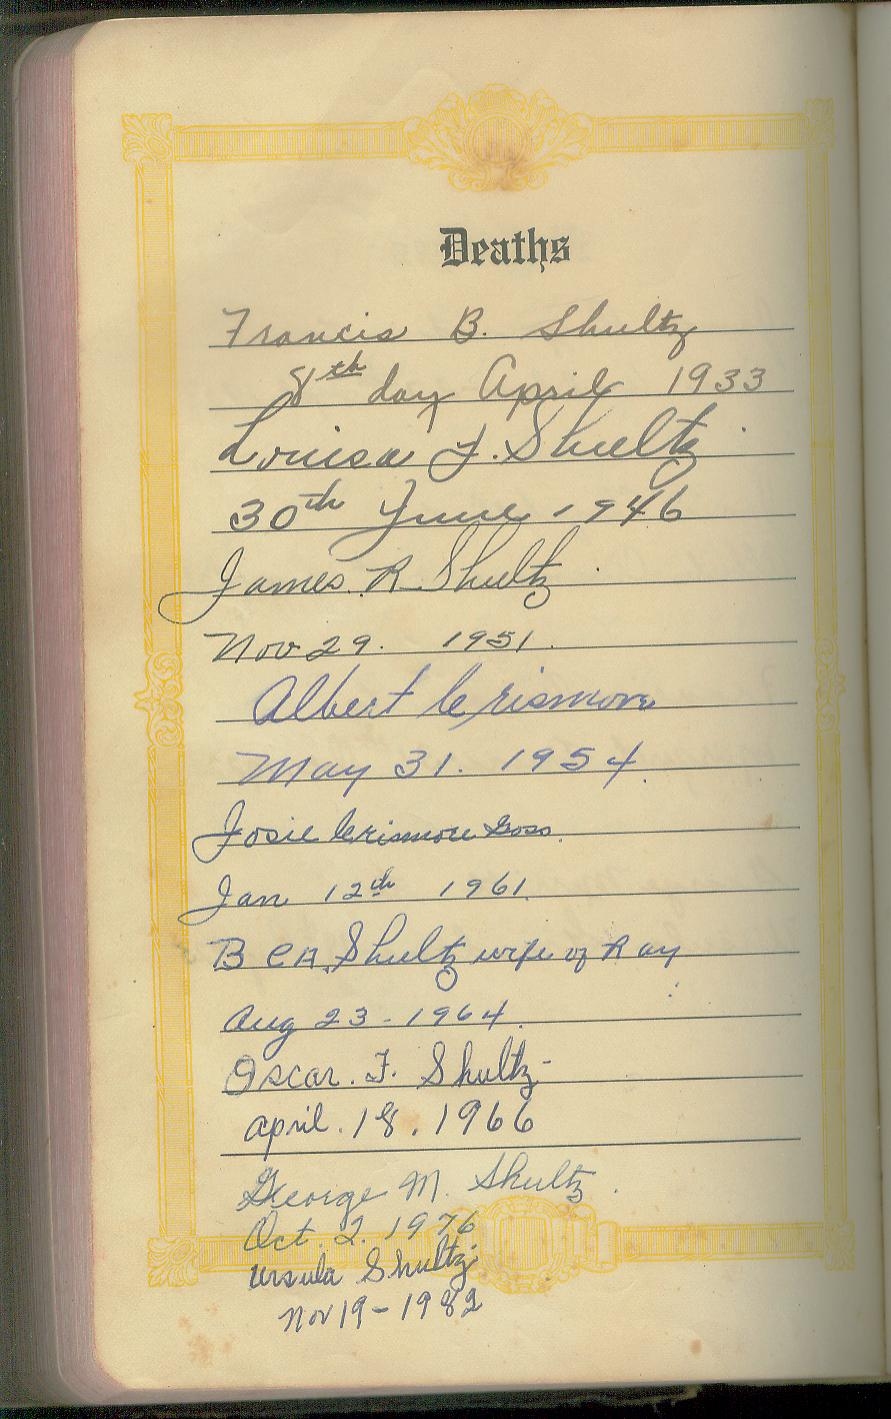 Deaths
Francis B. Shultz
8th day April 1933
Louisa F. Shultz
30th June 1946
James R Shultz
Nov 29. 1951.
Albert Crismore
May 31. 1954.
Josie Crismore Goss.
Jan 12th 1961.
B C A. Shultz wife of Ray
Aug 23-1964.
Oscar. F. Shultz-
April. 18. 1966
George M. Shultz.
Oct. 2. 1976
Ursula Shultz
Nov 19-1982